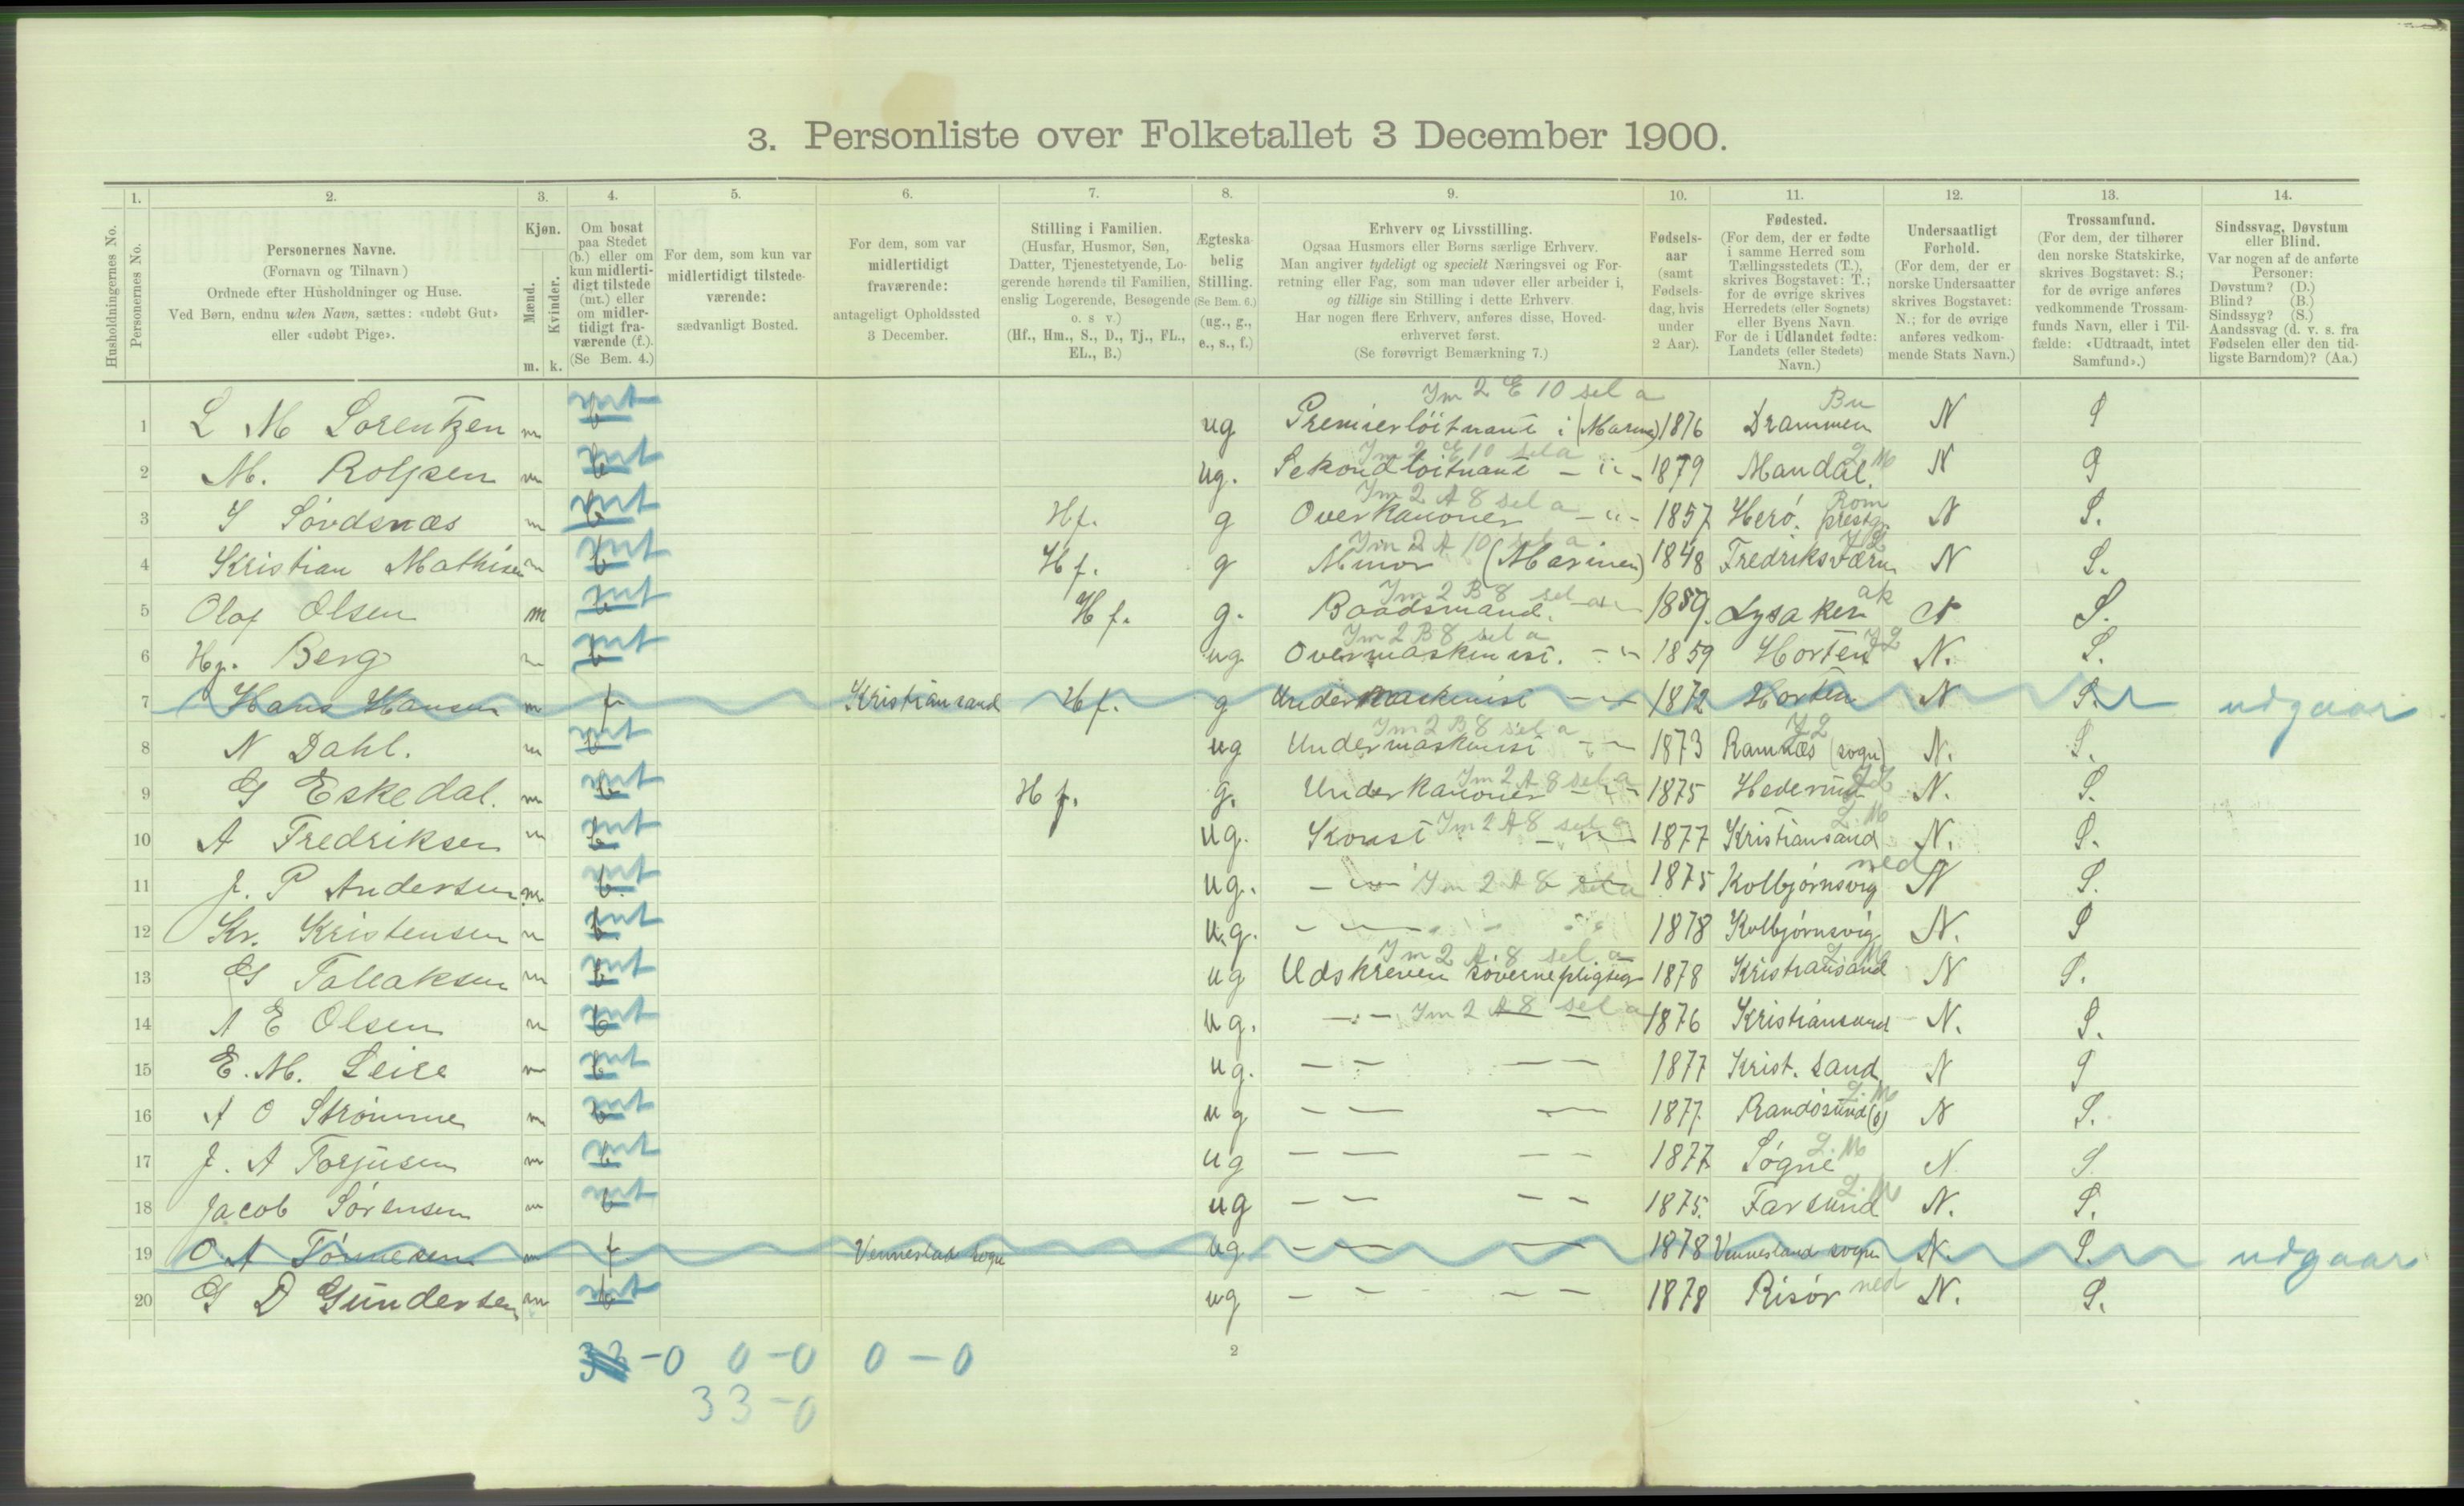 3. Personliste over Folketallet 3 December 1900.
1. 2. 3. 4. 5. 6. 7. 8. 9. 10. 11. 12. 13. 14.
Husholdningernes No.
Personernes No.
Personernes Navne.
(Fornavn og Tilnavn)
Ordnede efter Husholdninger og Huse.
Ved Børn, endnu uden Navn, sættes: «udøbt Gut»
eller «udøbt Pige».
Kjøn.
Mænd.
Kvinder.
m. k.
Om bosat
paa Stedet
(b.) eller om
kun midlerti-
digt tilstede
(mt.) eller
om midler-
tidigt fra-
værende (f.).
(Se Bem. 4.)
For dem, som kun var
midlertidigt tilstede-
værende:
sædvanligt Bosted.
For dem, som var
midlertidigt
fraværende:
antageligt Opholdssted
3 December.
Stilling i Familien.
(Husfar, Husmor, Søn,
Datter, Tjenestetyende, Lo-
gerende hørende til Familien,
enslig Logerende, Besøgende
o. s v.)
(Hf., Hm., S., D., Tj., FL.,
EL., B.)
Ægteska-
belig
Stilling.
(Se Bem. 6.)
(ug., g.,
e., s., f.)
Erhverv og Livsstilling.
Ogsaa Husmors eller Børns særlige Erhverv.
Man angiver tydeligt og specielt Næringsvei og For-
retning eller Fag, som man udøver eller arbeider i,
og tillige sin Stilling i dette Erhverv.
Har nogen flere Erhverv, anføres disse, Hoved-
erhvervet først.
(Se forøvrigt Bemærkning 7.)
Fødsels-
aar
(samt
Fødsels-
dag, hvis
under
2 Aar).
Fødested.
(For dem, der er fødte
i samme Herred som
Tællingsstedets (T.),
skrives Bogstavet: T.;
for de øvrige skrives
Herredets (eller Sognets)
eller Byens Navn.
For de i Udlandet fødte:
Landets (eller Stedets)
Navn.)
Undersaatligt
Forhold.
(For dem, der er
norske Undersaatter
skrives Bogstavet:
N.; for de øvrige
anføres vedkom-
mende Stats Navn.)
Trossamfund.
(For dem, der tilhører
den norske Statskirke,
skrives Bogstavet: S.;
for de øvrige anføres
vedkommende Trossam-
funds Navn, eller i Til-
fælde: «Udtraadt, intet
Samfund».)
Sindssvag, Døvstum
eller Blind.
Var nogen af de anførte
Personer:
Døvstum? (D.)
Blind? (B.)
Sindssyg? (S.)
Aandssvag (d. v. s. fra
Fødselen eller den tid-
ligste Barndom)? (Aa.)
Im 2 E 10 sel a Bu
1 L M Lorentzen m b mt ug Premierløitnant i (Marine) 1876 Drammen N S
Im 2 E 10 sel a L M
2 M. Rolfsen m b mt ug. Sekondløitnant - " - 1879 Mandal. N S
Im 2 A 8 sel a Rom
3 S Søvdsnæs m b mt Hf. g Overkanoner - " - 1857 Herö. prestgr. N S.
Im 2 A 10 sel a JL
4 Kristian Mathisen m b mt Hf. g Minör (Marinen) 1848 Fredriksværn N S.
Im 2 B 8 sel a ak
5 Olaf Olsen m b mt Hf. g. Baadsmand. 1859. Lysaker N S.
Im 2 B 8 sel a JL
6 Hj. Berg m b mt ug Overmaskinist. - " 1859 Horten N. S.
7 Hans Hansen m f Kristiansand Hf. g Undermaskinist - - 1872 Horten N S. udgaar
Im 2 B 8 sel a JL
8 N Dahl. m b mt ug Undermaskinist - - 1873 Ramnæs (sogn) N. S.
Im 2 A 8 sel a
9 G Eskedal. m b mt Hf. g. Underkanoner - " - 1875 N. S.
Im 2 A 8 sel a L. M
10 A Fredriksen m b mt ug. Konst - " - 1877 Kristiansand N. S.
ned
11 J. P Andersen m b. mt ug. - " - Im 2 A 8 sel a 1875 Kolbjørnsvig N S.
12 Kr. Kristensen m b mt ug. - - 1878 Kolbjørnsvig N. S
Im 2 A 8 sel a L M
13 G Tallaksen m b mt ug Udskreven søvernepligtig 1878 Kristiansand N S.
14 A E Olsen m b mt ug. - - Im 2 A 8 sel a 1876 Kristiansand N. S.
15 E. M. Leire m b mt ug. - - - - 1877 Krist. sand N S
L. M
16 A O Strömme m b mt ug - - - 1877. Randösund (s) N S.
L. M
17 J. A Torjusen m b mt ug - - - - 1877 Søgne N S
L. M
18 Jacob Sørensen m b mt ug - - - - 1875. Farsund N. S.
19 O. A Tönnesen m f Vennesland sogn ug - - - 1878 Vennesland sogn N. S. udgaar
20 G D Gundersen m b mt ug - - - - 1878 Risør ned N. S.
-0 0-0 0-0
2
33-0